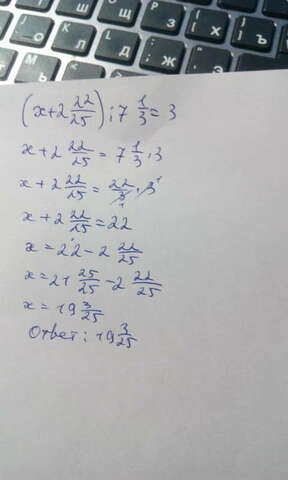 (x+2 22/25) : 7 1/3 = 3
x + 2 22/25 = 7 1/3 · 3
x + 2 22/25 = 22/3 · 3
x + 2 22/25 = 22
x = 22 - 2 22/25
x = 21 25/25 - 2 22/25
x = 19 3/25
Ответ: 19 3/25